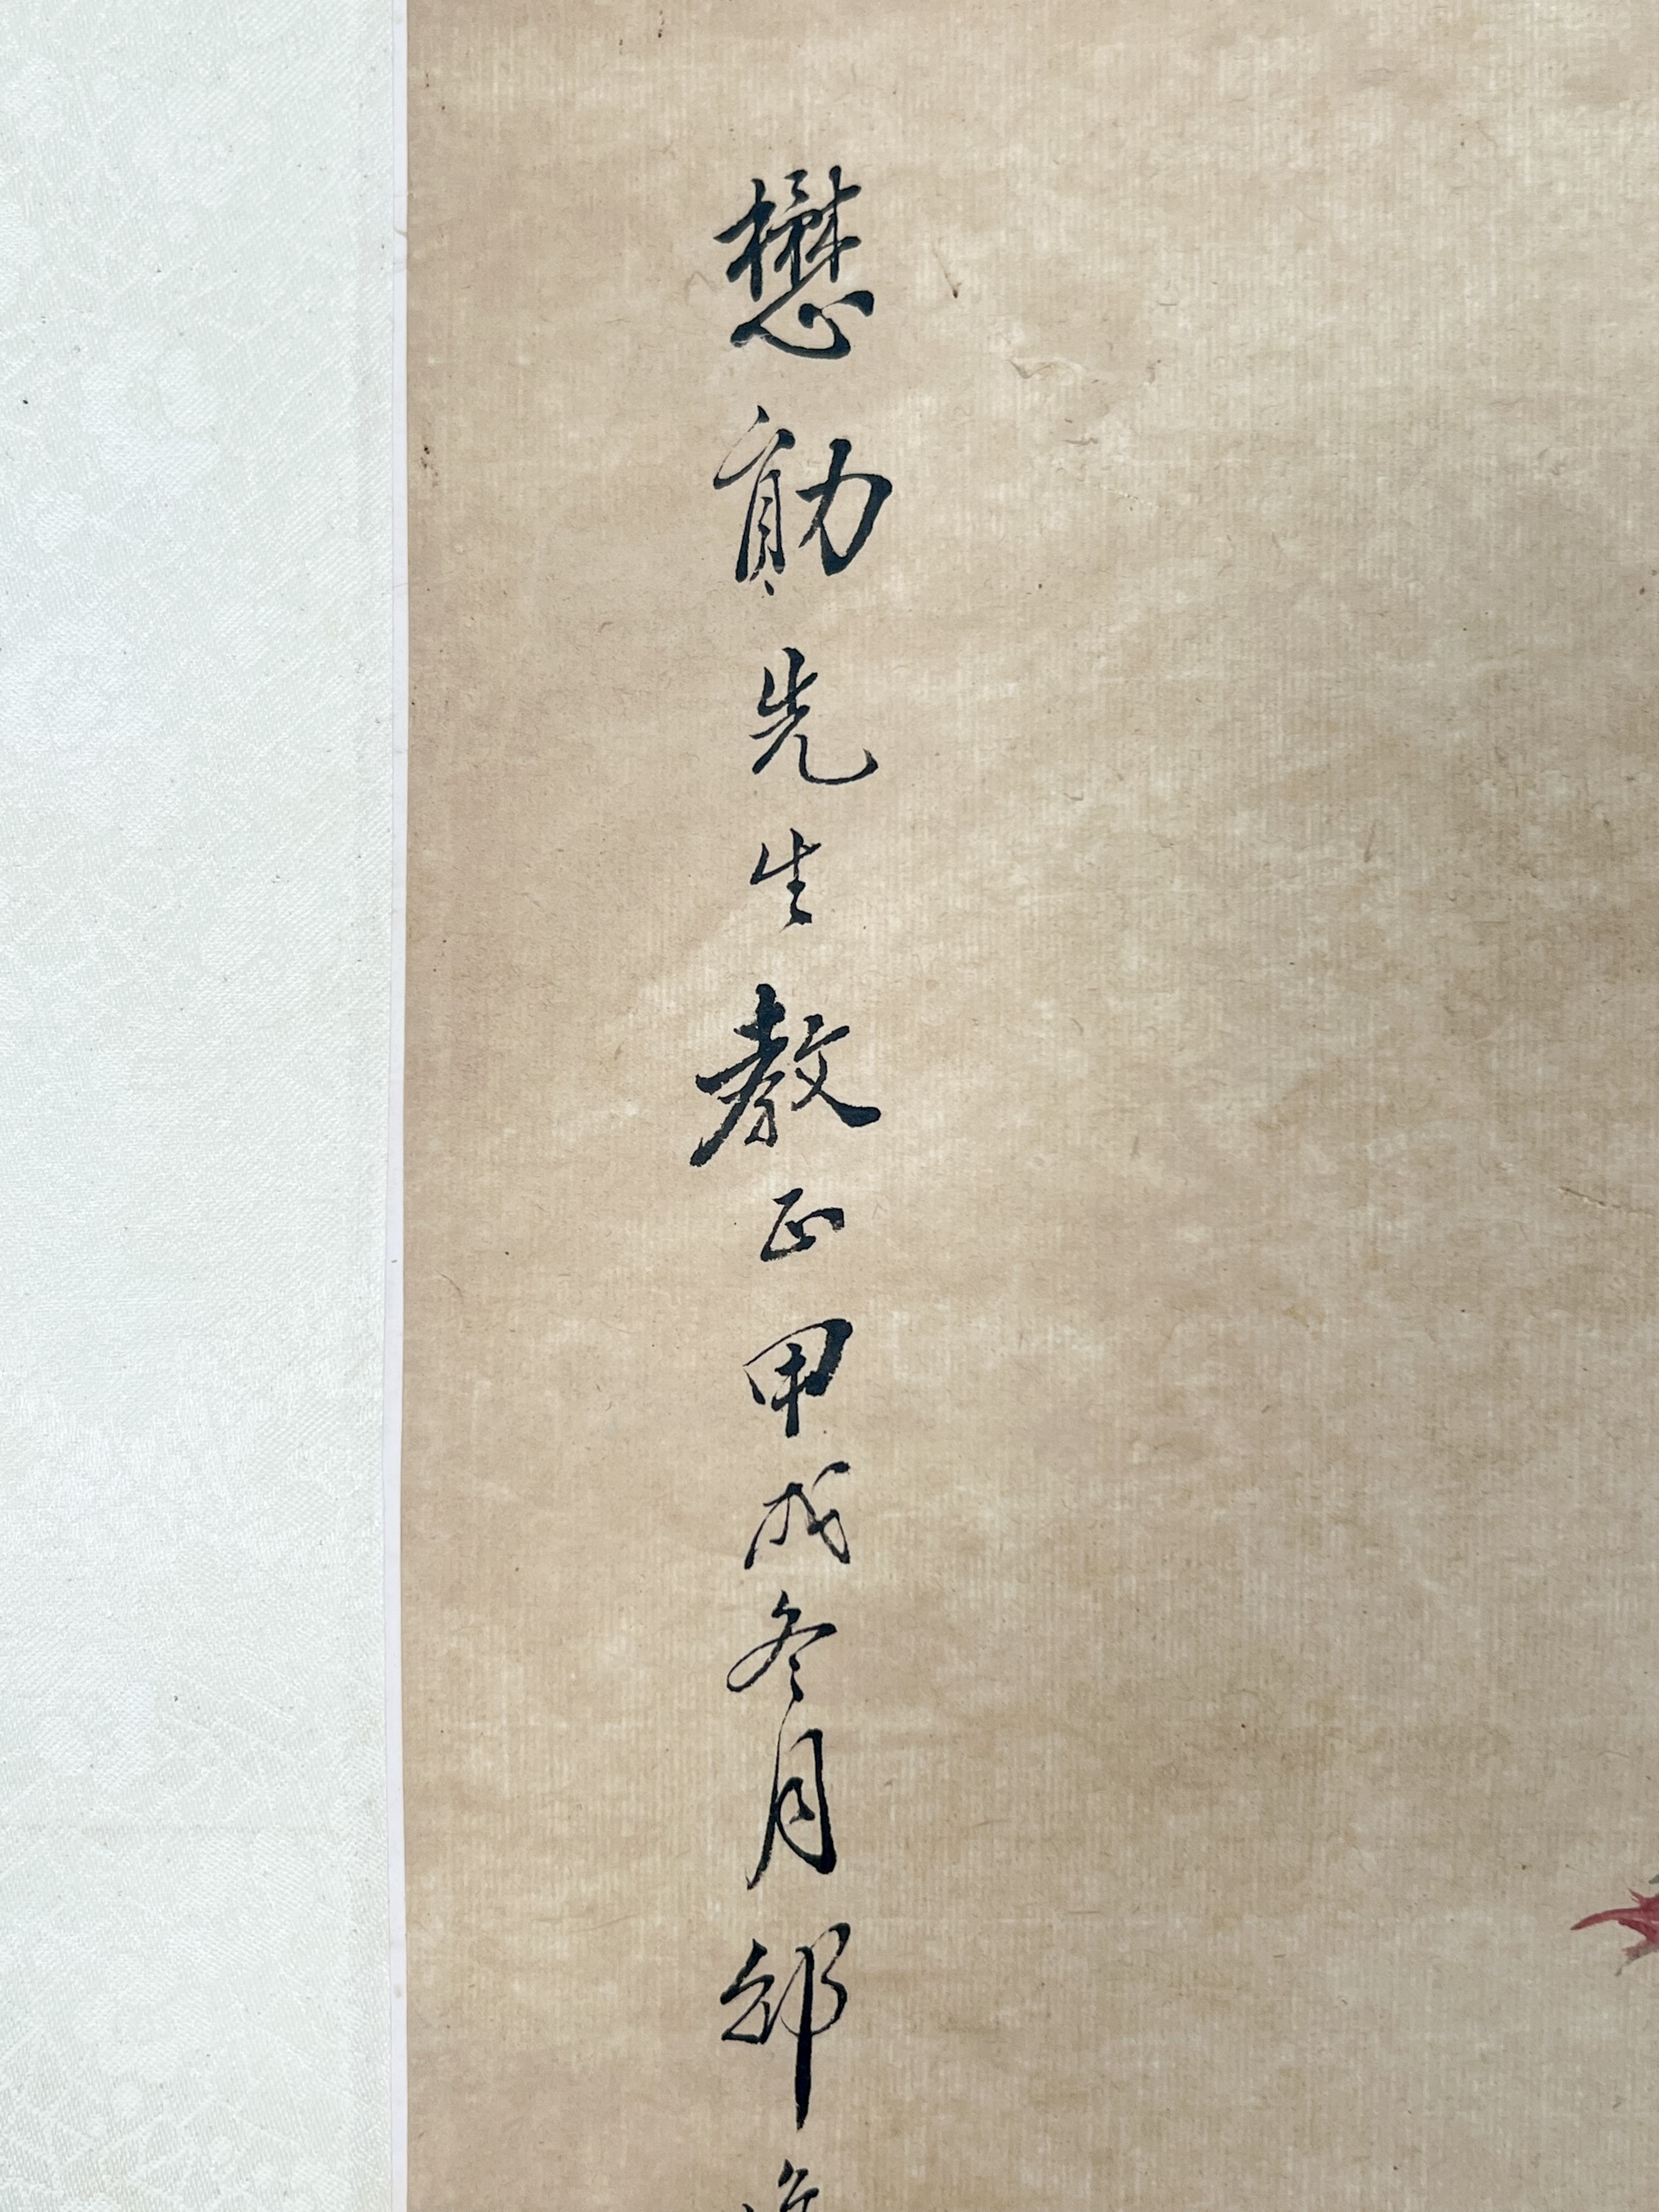 懋勛先生教正甲戌冬月邵